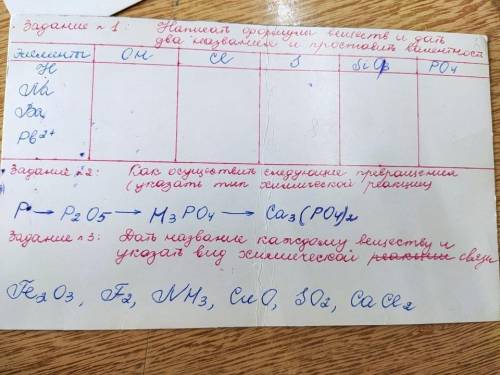 Задание № 1: Написать формулы веществ и дать
два названия и проставить валентность
Элементы OH Cl S SiO3 PO4
H
Na
Ba
Pb2+
Задание № 2: Как осуществить следующие превращения
(указать тип химической реакции
P → P2O5 → H3PO4 → Ca3(PO4)2
Задание № 3: Дать название каждому веществу и
указать вид химической реакции связи
Fe2O3, F2, NH3, CuO, SO2, CaCl2